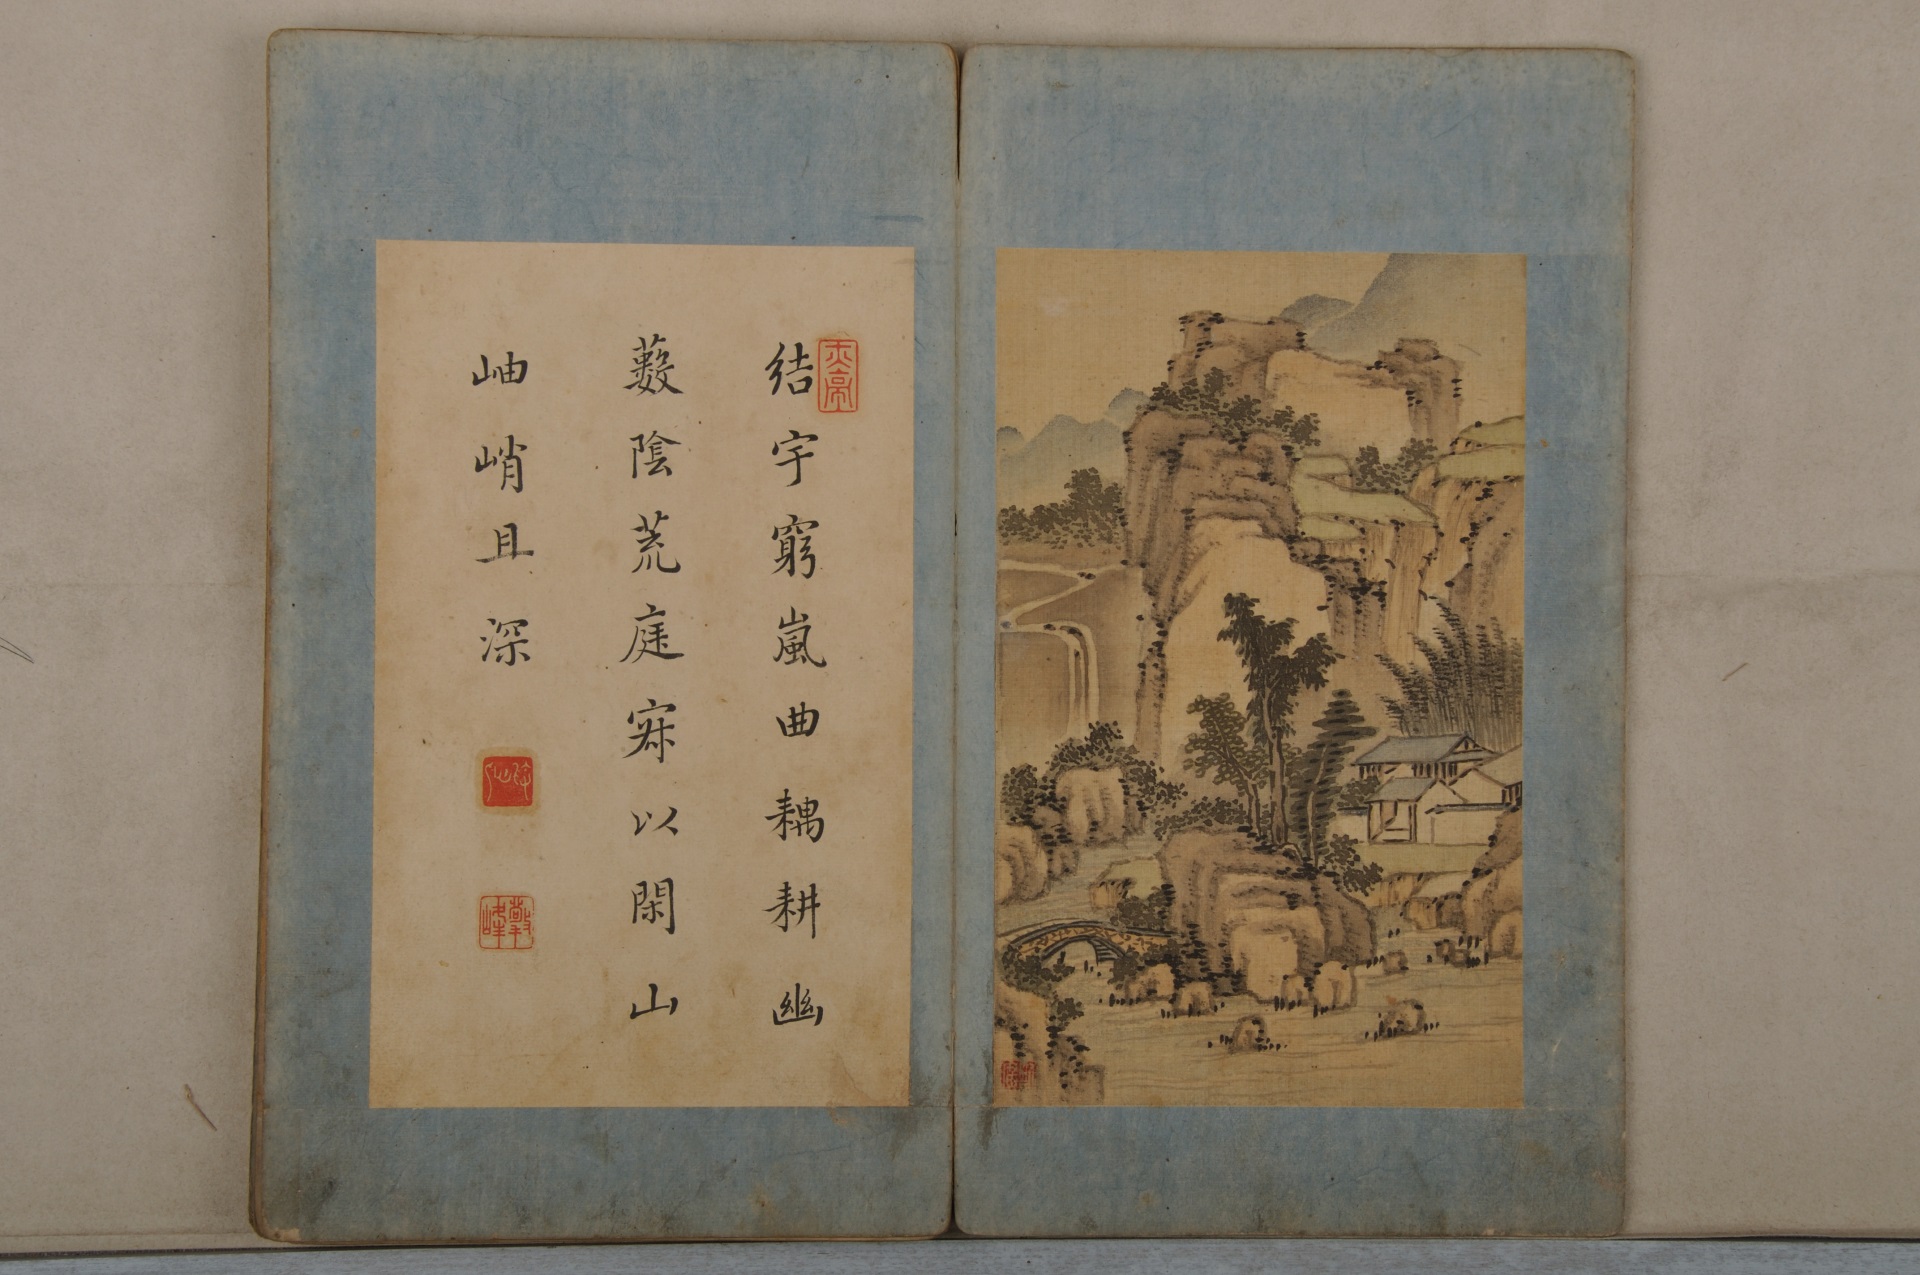 結宇窮嵐曲耦耕幽
藪陰荒庭寂以閑山
岫峭且深